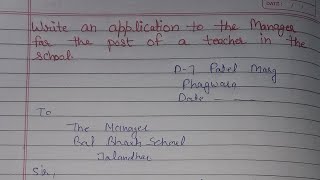 DATE:
Write an application to the Manager
for the post of a teacher in the
school.
D-7 Patel Marg
Phagwara
Date - - -
To
The Manager
Bal Bharti School
Jalandhar
Sir,